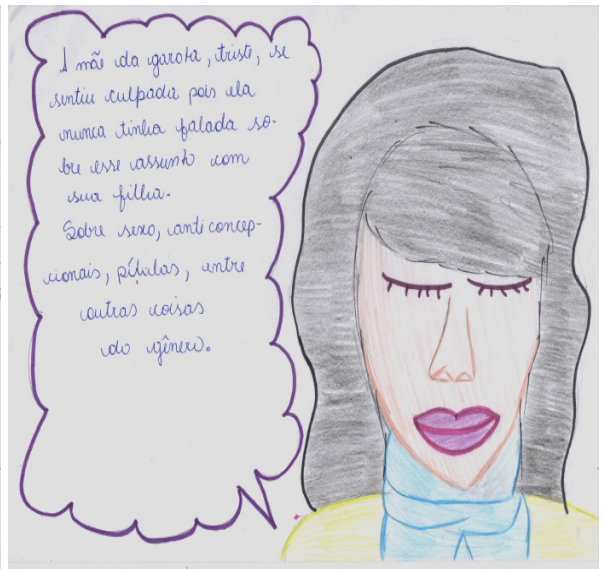 A mãe da garota, triste, se
sentiu culpada pois ela
nunca tinha falada so-
bre esse assunto com
sua filha.
Sobre sexo, anticoncep-
cionais, pílulas, entre
outras coisas
do gênero.